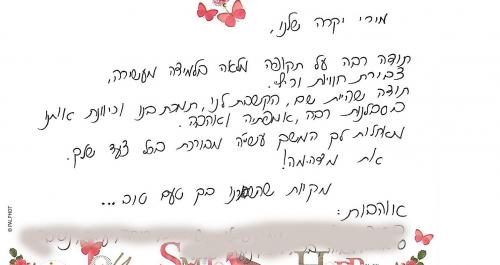 מירי יקרה שלנו,
תודה רבה על תקופה מלאה בלמידה מעשירה,
צבירת חוויות
תודה שהיית שם, הקשבת לנו, תמכת בנו וכיוונת אותנו
בסבלנות רבה, אמפתיה ואהבה.
מאחלות לך המשך עשייה מבורכת בכל צעד שלך.
את מדהימה!
מקוות שהשארנו בך טעם טוב...
אוהבות:
© PALPHOT